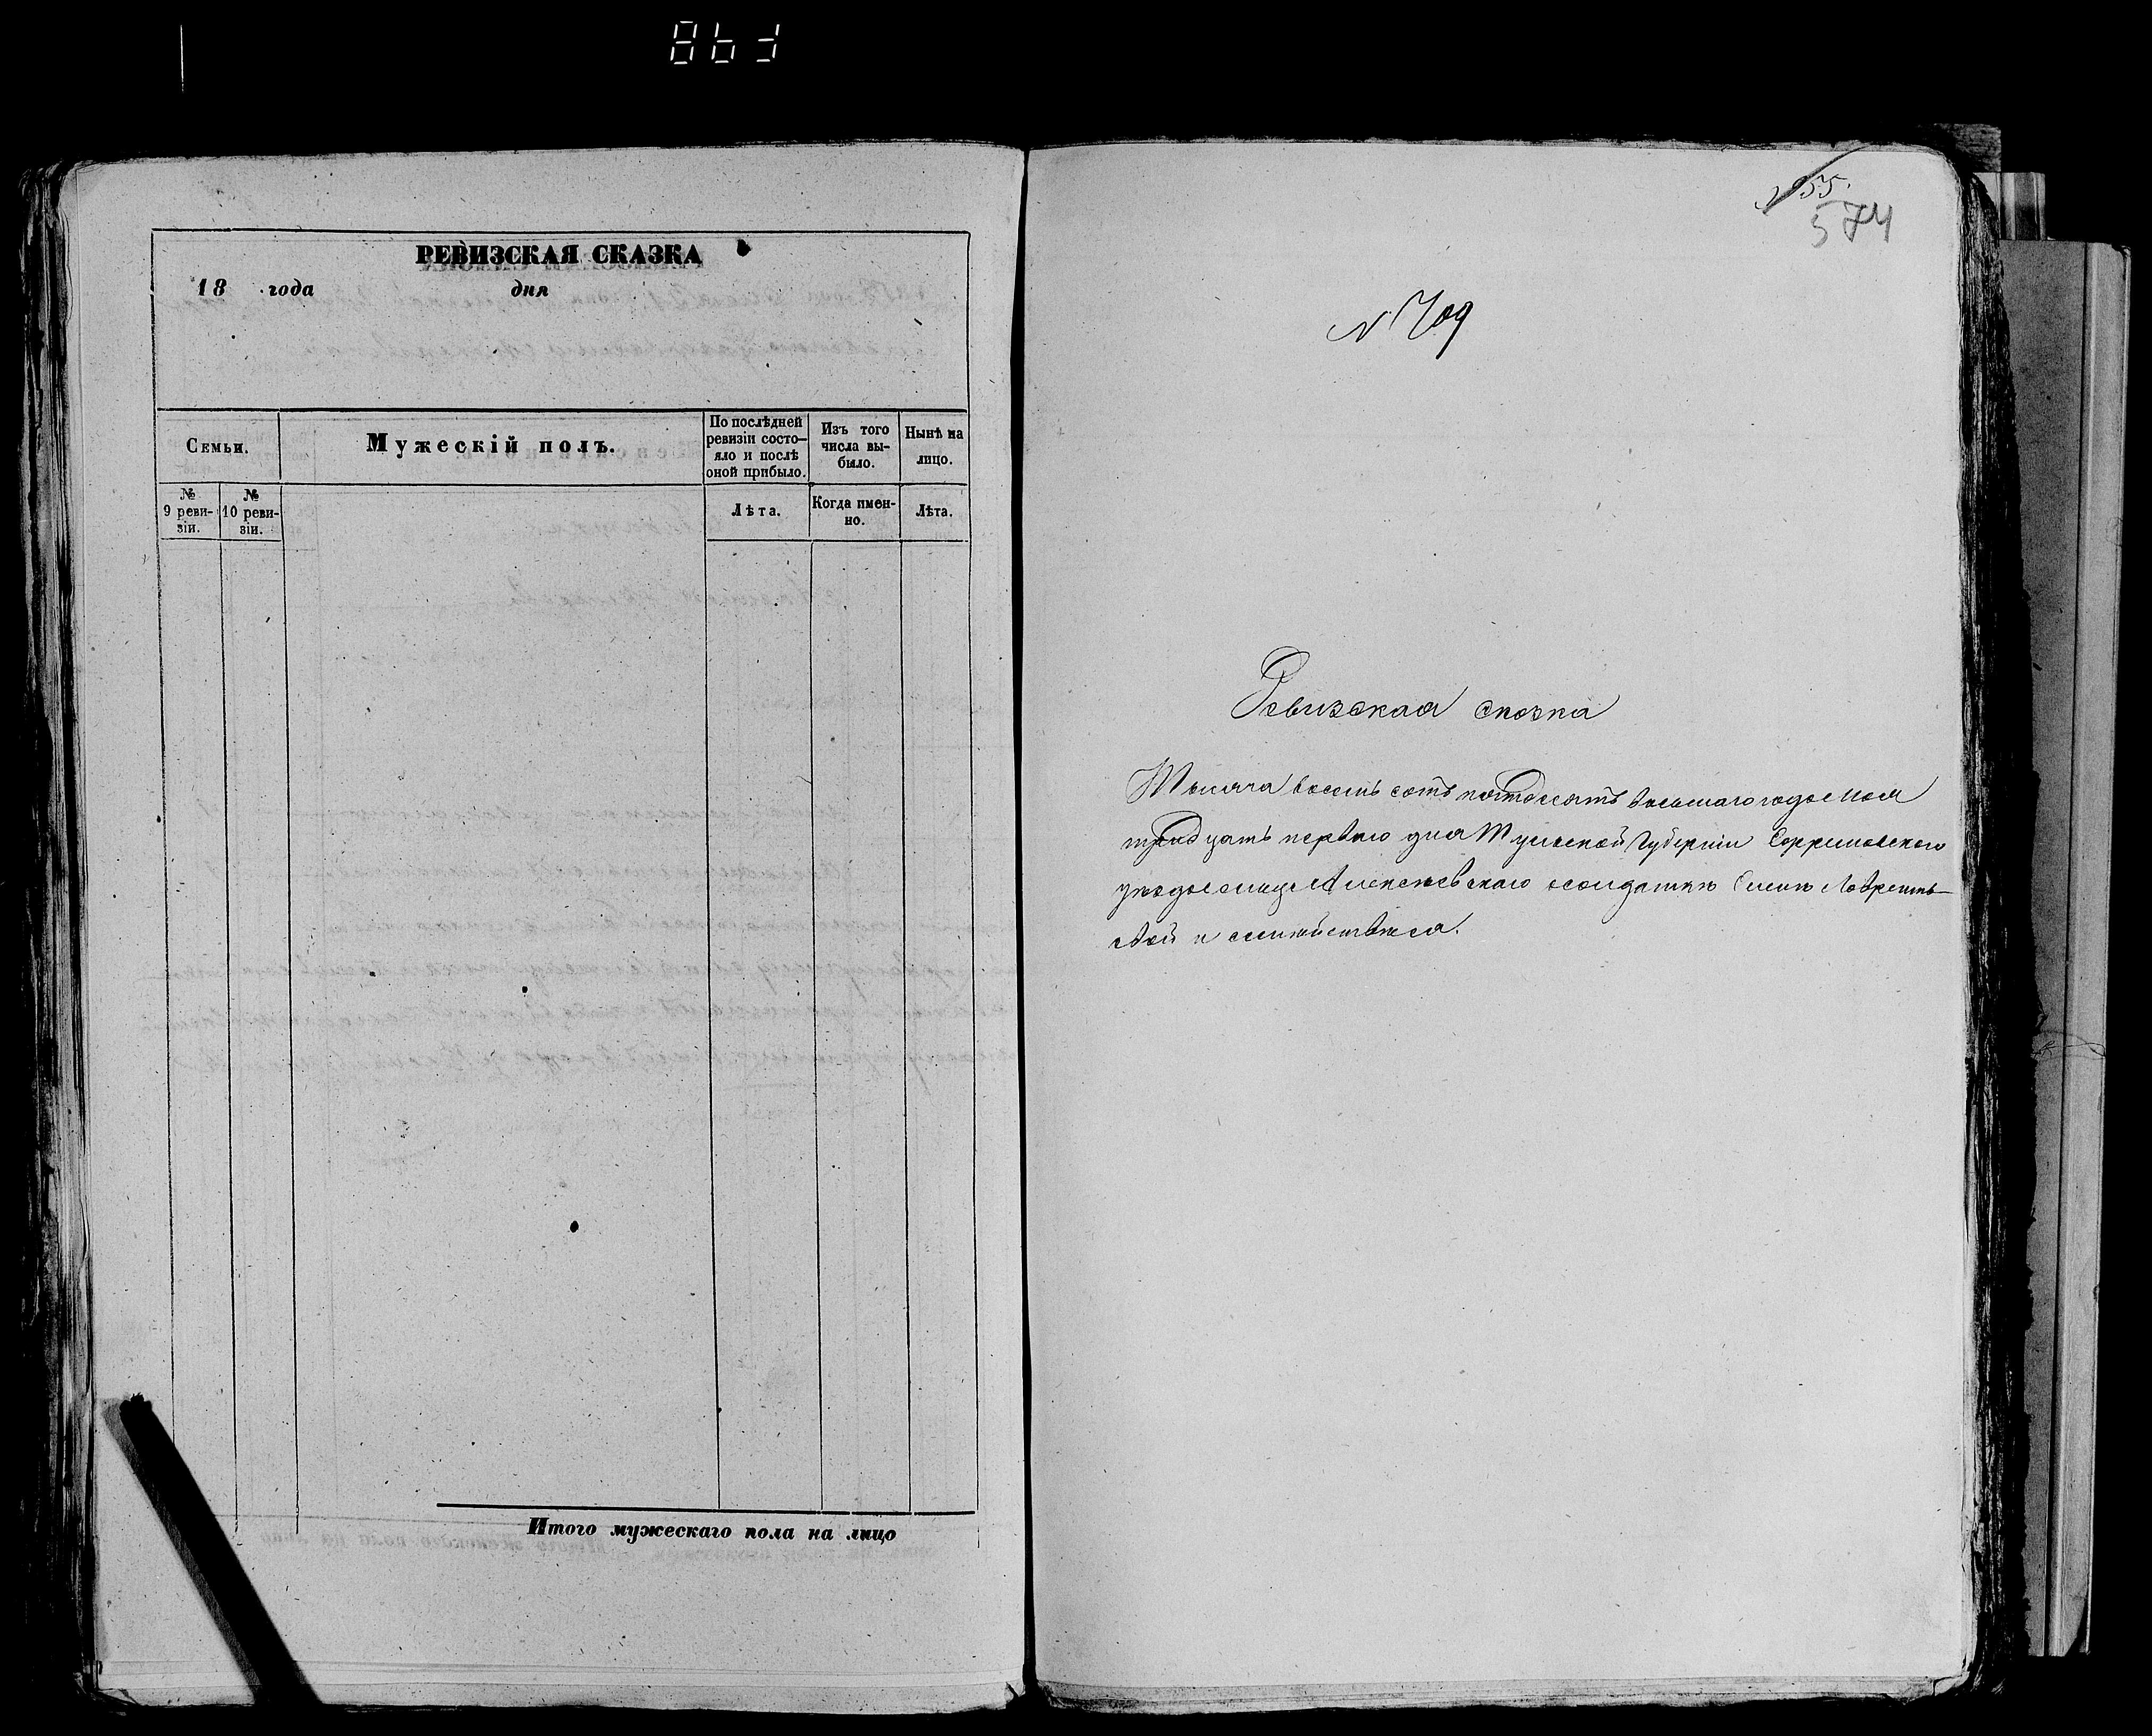 РЕВИЗСКАЯ СКАЗКА
18 года дня
Семьи.
Мужескій полъ.
По послѣдней
ревизіи состо-
яло и послѣ
оной прибыло.
Изъ того
числа вы-
было.
Нынѣ на
лицо.
№
9 реви-
зіи.
№
10 реви-
зіи.
Лѣта.
Когда имен-
но.
Лѣта.
Итого мужескаго пола на лицо
574
N 709
Ревизская сказка
Тысяча восемь сотъ пятдесятъ восьмаго года мая
тридцать перваго дня Тульской Губерніи Ефремовскаго
уѣзда
евой и семѣйства ея.